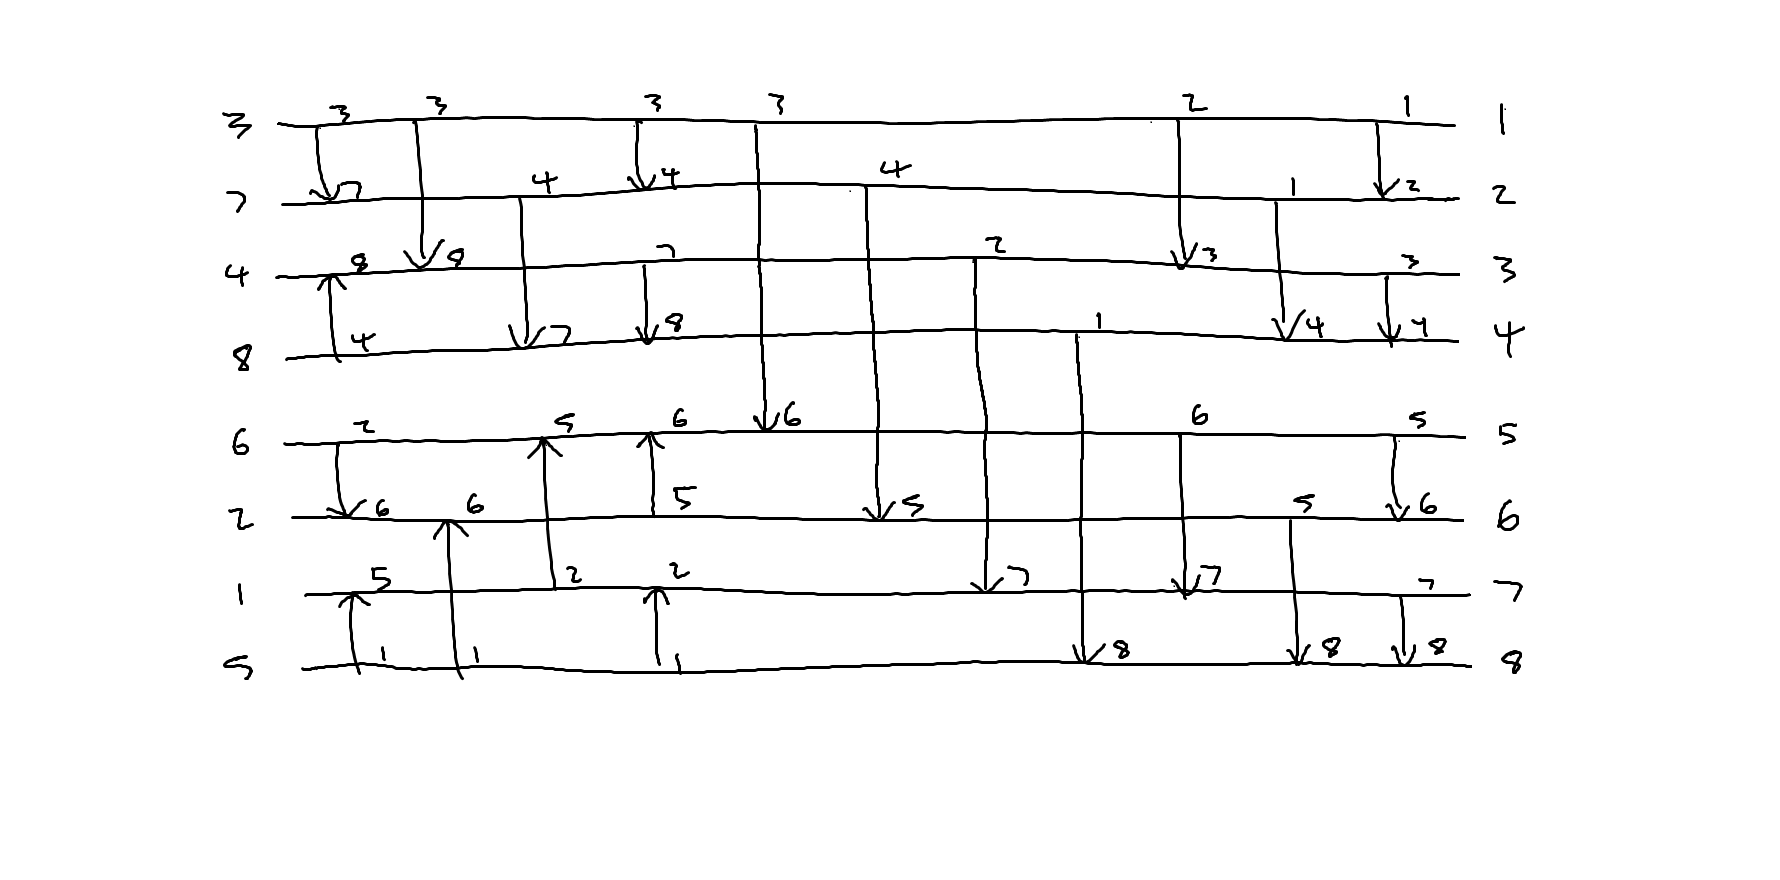 3 3 3 3 3 2 1 1
7 7 4 4 4 1 2 2
4 8 8 7 2 3 3 3
8 4 7 8 1 4 4 4
6 2 5 6 6 6 5 5
2 6 6 5 5 5 6 6
1 5 2 2 7 7 7 7
5 1 1 1 8 8 8 8